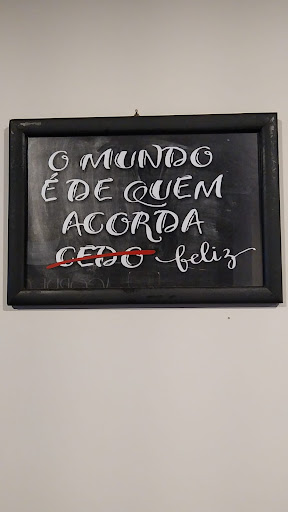 O MUNDO
É DE QUEM
ACORDA
CEDO feliz